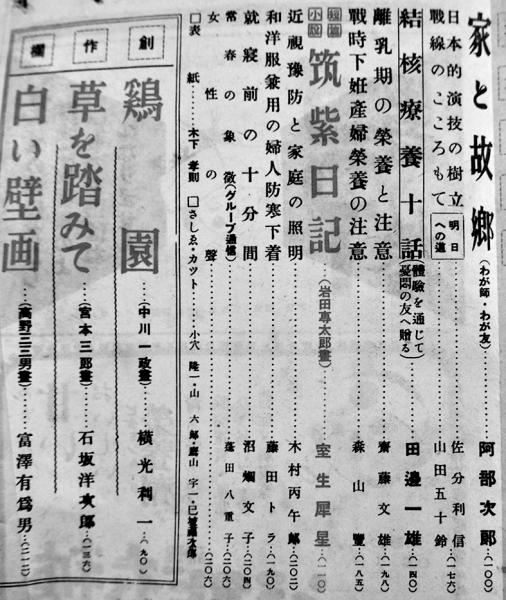 家と故郷(わが師・わが友)……阿部次郎(一〇〇)
日本的演技の樹立……佐分利信
戰線のこころもて 明日への道……山田五十鈴(一七六)
結核療養十話 體驗を通じて憂悶の友へ贈る……田邊一雄(一四〇)
離乳期の榮養と注意……齋藤文雄(一九八)
戰時下姙產婦榮養の注意……森山豐(一八五)
短篇小說 筑紫日記(岩田専太郎畫)……室生犀星(一一〇)
近視豫防と家庭の照明……木村丙午郞(二〇二)
和洋服兼用の婦人防寒下着……藤田トラ(一九〇)
就寢前の十分間……沼畑文子(二〇四)
常春の象徵(グループ通信)……蓬田八重子(二〇六)
女性の聲……(二〇六)
□表紙……木下孝則 □さしゑ・カット……小穴隆一・山六郎・鷹山宇一・
創作欄
鷄園(中川一政畫)……橫光利一(九〇)
草を踏みて(宮本三郎畫)……石坂洋次郎(一三六)
白い壁画(高野三三男畫)……富澤有爲男(二一二)